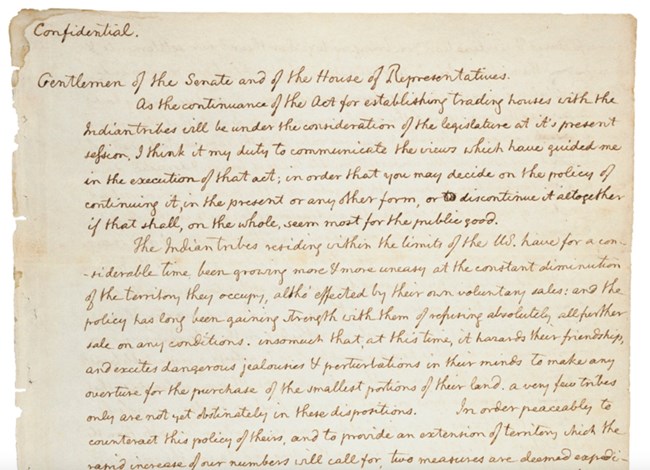 Confidential.
Gentlemen of the Senate and of the House of Representatives.
As the continuance of the Act for establishing trading houses with the
Indian tribes will be under the consideration of the legislature at it's present
session, I think it my duty to communicate the views which have guided me
in the execution of that act; in order that you may decide on the policy of
continuing it, in the present or any other form, or to discontinue it altogether
if that shall, on the whole, seem most for the public good.
The Indian tribes residing within the limits of the US. have for a con-
-siderable time, been growing more & more uneasy at the constant diminution
of the territory they occupy, altho' effected by their own voluntary sales: and the
policy has long been gaining strength with them of refusing absolutely all further
sale on any conditions. insomuch that, at this time, it hazards their friendship,
and excites dangerous jealousies & perturbations in their minds to make any
overture for the purchase of the smallest portions of their land. a very few tribes
only are not yet obstinately in these dispositions. In order peaceably to
counteract this policy of theirs, and to provide an extension of territory which the
rapid increase of our numbers will call for, two measures are deemed expedi-